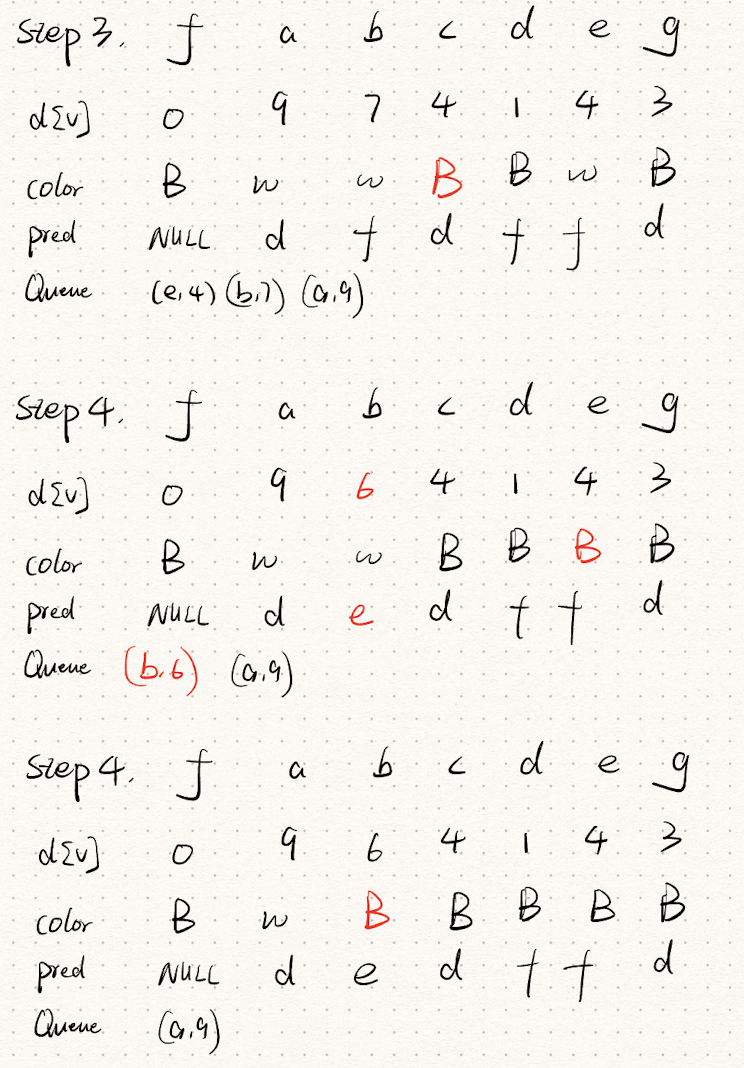 Step 3. f a b c d e g
d[v] 0 9 7 4 1 4 3
color B w w B B w B
pred NULL d f d f f d
Queue (e,4) (b,7) (a,9)
Step 4. f a b c d e g
d[v] 0 9 6 4 1 4 3
color B w w B B B B
pred NULL d e d f f d
Queue (b,6) (a,9)
Step 4. f a b c d e g
d[v] 0 9 6 4 1 4 3
color B w B B B B B
pred NULL d e d f f d
Queue (a,9)